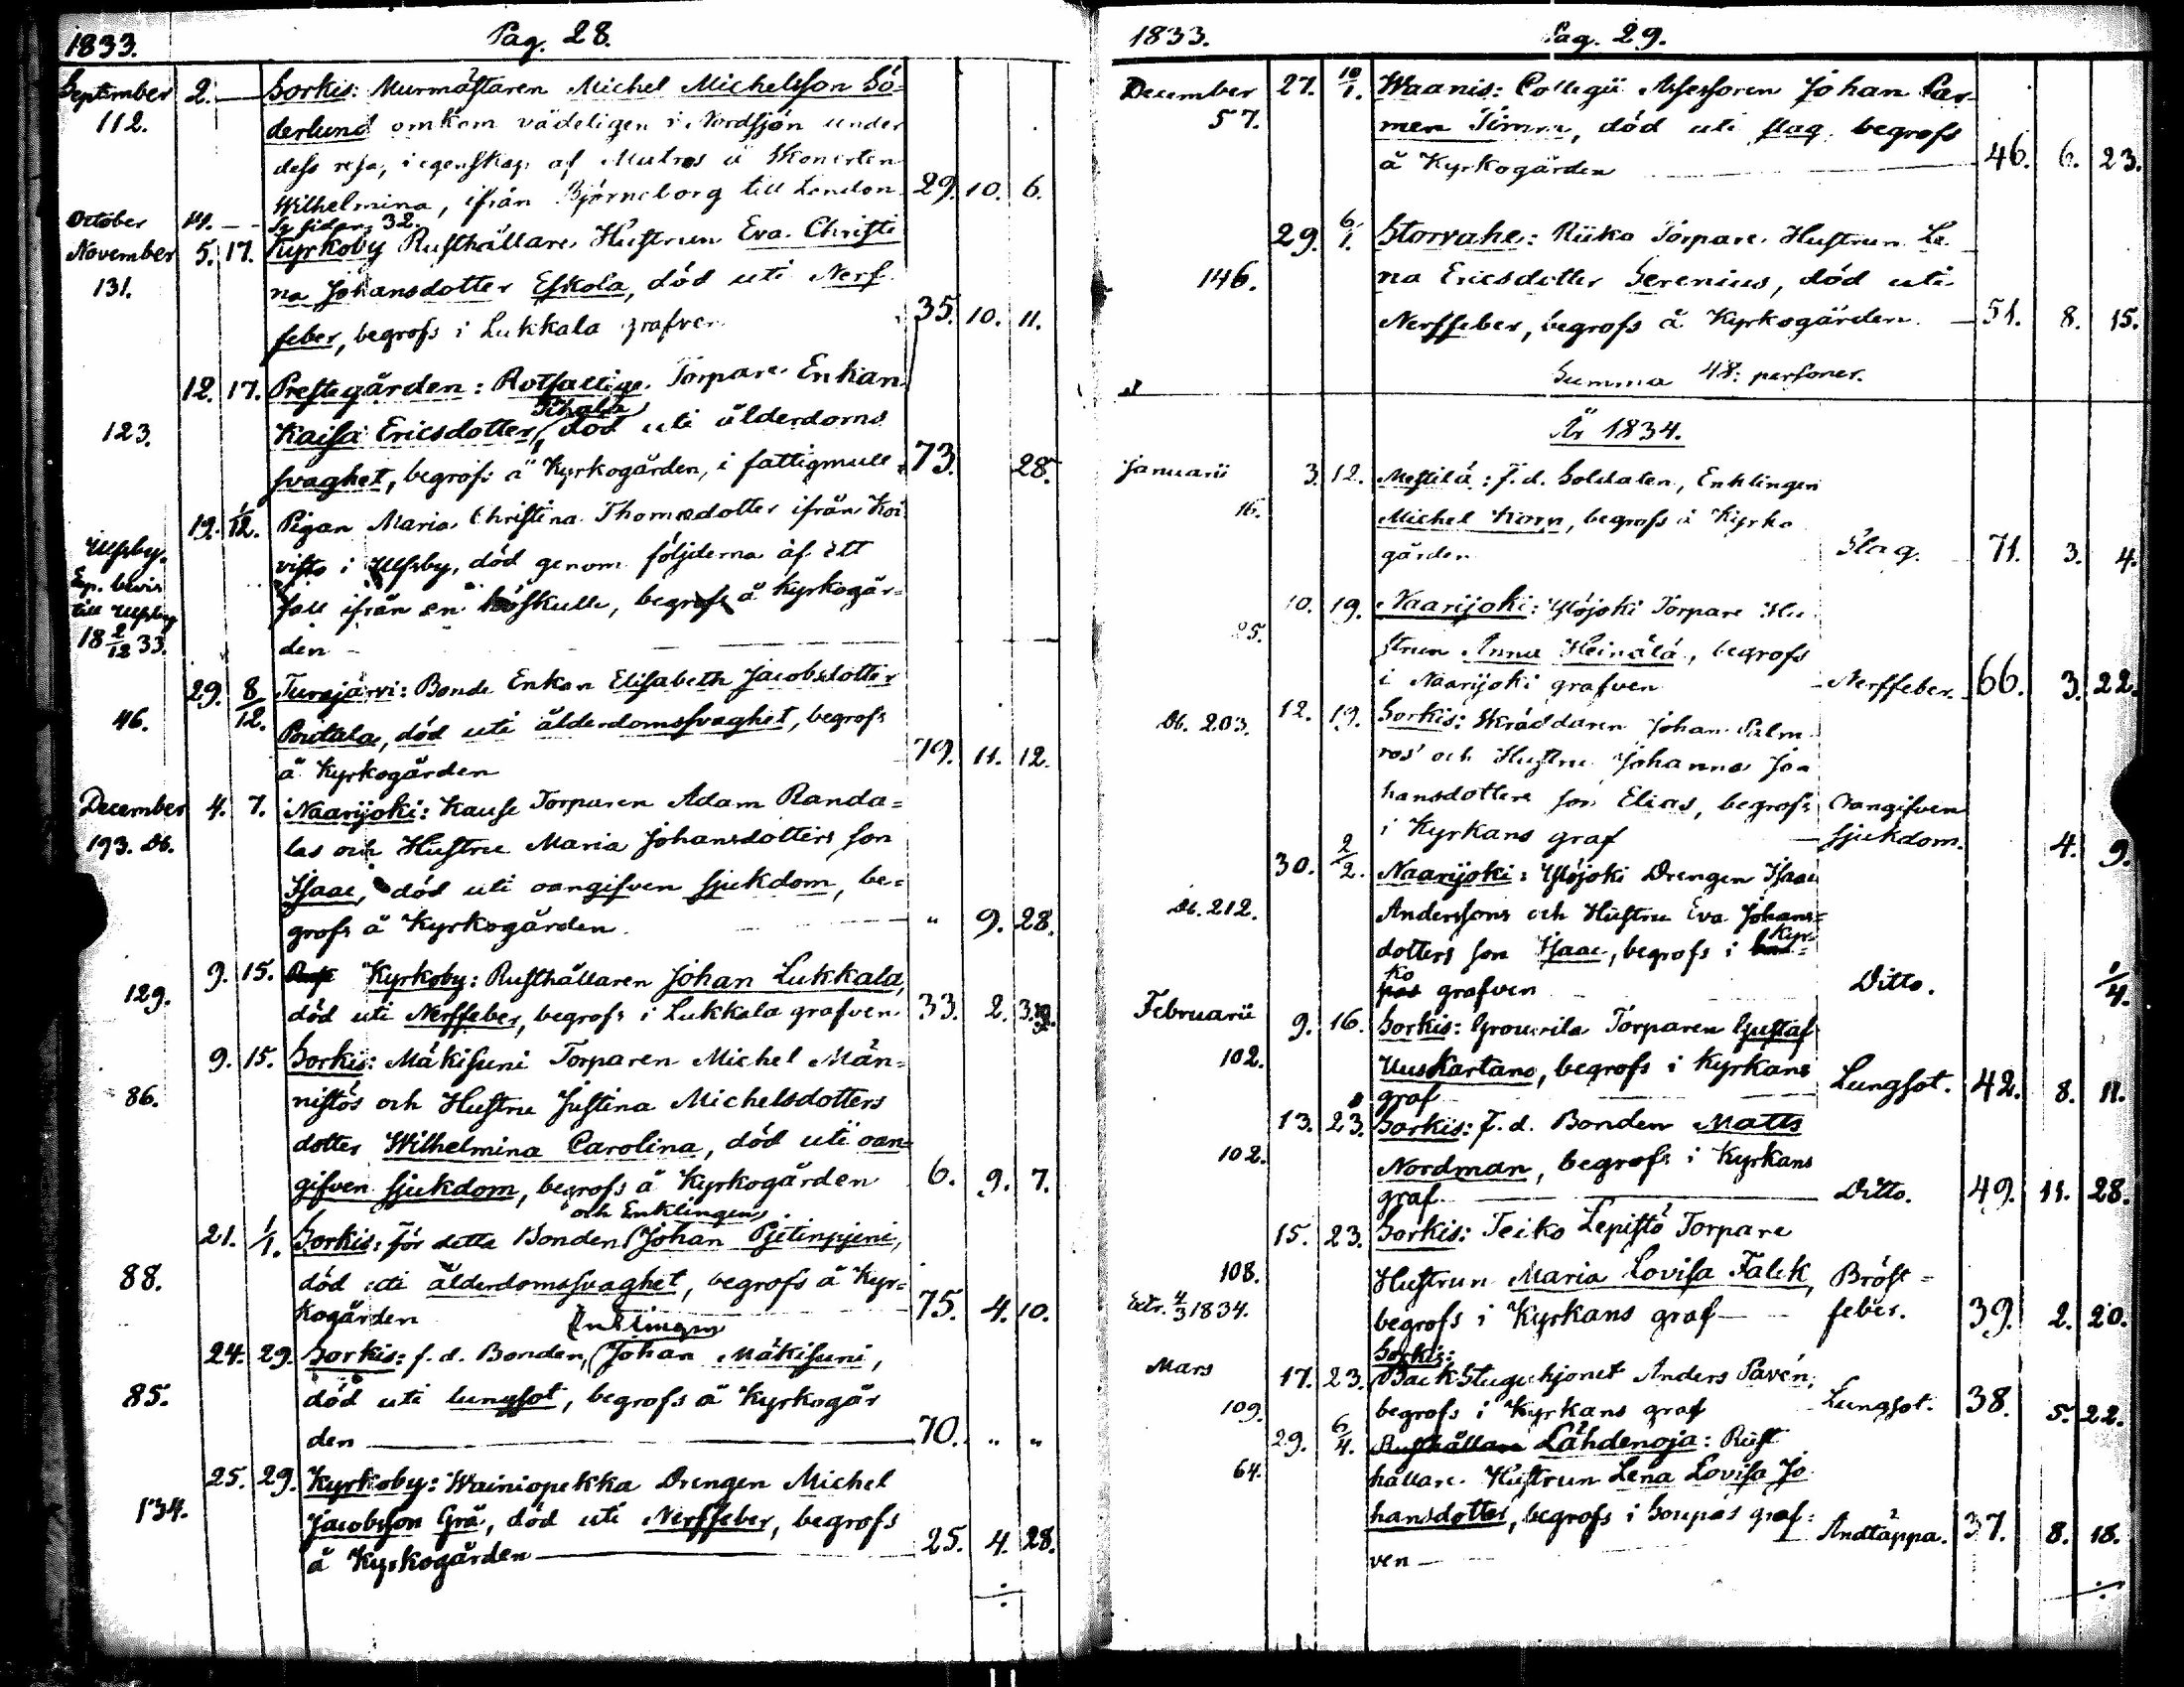 1833. Pag. 28.
September 2. Sorkis: Murmästaren Michel Michelsson Sö=
112. derlund omkom vådeligen i Nordsjön under
dess resa, i egenskap af Matros å Skonerten
Wilhelmina, ifrån Björneborg till London 29. 10. 6.
October Se sidan, 32.
November 5. 17. Kyrkoby Rusthållare Hustrun Eva Christi
131. na Johansdotter Eskola, död uti Nerf
feber, begrofs i Lukkala grafven 35. 10. 11.
12. 17. Prestegården: Rotfattige Torpare Enkan
123. Kaisa Ericsdotter, död uti ålderdoms
svaghet, begrofs å Kyrkogården, i fattigmull 73. 28.
19. 1/12. Pigan Maria Christina Thomædotter ifrån Koi
Ulfsby. visto i Ulfsby, död genom följderna af ett
Exp. bevis fall ifrån en höskulle, begrofs å Kyrkogår=
till Ulfsby
18 2/12 33. den
29. 8/12. Turajärvi: Bonde Enkan Elisabeth Jacobsdotter
46. Poutala, död uti ålderdomssvaghet, begrofs
å Kyrkogården 79. 11. 12.
December 4. 7. Naarijoki: Kause Torparen Adam Randa=
193. Db. las och Hustru Maria Johansdotters son
Isaac, död uti oangifven sjukdom, be=
grofs å Kyrkogården. " 9. 28.
9. 15. Kyrkoby: Rusthållaren Johan Lukkala,
129. död uti Nerffeber, begrofs i Lukkala grafven 33. 2.
9. 15. Sorkis: Mäkisuni Torparen Michel Män=
86. nistös och Hustru Justina Michelsdotters
dotter Wilhelmina Carolina, död uti oan=
gifven sjukdom, begrofs å Kyrkogården 6. 9. 7.
och Enklingen
21. 1/1. Sorkis: för detta Bonden Johan Pjetinpjeni,
88. död uti ålderdomssvaghet, begrofs å Kyr=
kogården 75. 4. 10.
Enklingen
24. 29. Sorkis: f. d. Bonden, Johan Mäkisuni,
85. död uti lungsot, begrofs å Kyrkogår
den 70. " "
25. 29. Kyrkoby: Wainiopekka Drengen Michel
134. Jacobsson Grå, död uti Nerffeber, begrofs
å Kyrkogården 25. 4. 28.
1833. Pag. 29.
December 27. 10/1. Waanis: Collegii Assessoren Johan Car
57. men Timm, död uti slag, begrofs
å Kyrkogården 46. 6. 23.
29. 6/1. Storvahe: Riiko Torpare Hustrun Le
146. na Ericsdotter Serenius, död uti
Nerffeber, begrofs å Kyrkogården. 51. 8. 15.
Summa 48: personer.
År 1834.
Januarii 3. 12. Mestilä: f. d. Soldaten, Enklingen
16. Michel Korp, begrofs å Kyrko
gården Slag. 71. 3. 4.
10. 19. Naarijoki: Ylöjoki Torpare Hu
25. strun Anna Heinälä, begrofs
i Naarijoki grafven Nerffeber. 66. 3. 22.
Db. 203. 12. 19. Sorkis: Skräddaren Johan Palm
ros' och Hustru Johanna Jo
hansdotters son Elias, begrofs Oangifven
i Kyrkans graf sjukdom. 4. 9.
30. 2/2. Naarijoki: Ylöjoki Drengen Isaac
Db. 212. Anderssons och Hustru Eva Johans=
dotters son Isaac, begrofs i Kyr=
ko grafven Ditto. 1/4.
Februarii 9. 16. Sorkis: Torparen Gustaf
102. Uuskartano, begrofs i Kyrkans
graf Lungsot. 42. 8. 11.
13. 23. Sorkis: f. d. Bonden Matts
102. Nordman, begrofs i Kyrkans
graf Ditto. 49. 11. 28.
15. 23. Sorkis: Teiko Lepistö Torpare
108. Hustrun Maria Lovisa Falck, Bröst=
Extr. 4/3 1834. begrofs i Kyrkans graf feber. 39. 2. 20.
Sorkis:
Mars 17. 23. Backstuguhjonet Anders Pavén,
109. begrofs i Kyrkans graf Lungsot. 38. 5. 22.
29. 6/4. Rusthållare Lähdenoja: Rust
64. hållare Hustrun Lena Lovisa Jo
hansdotter, begrofs i Soupas graf=
ven Andtäppa. 37. 8. 18.